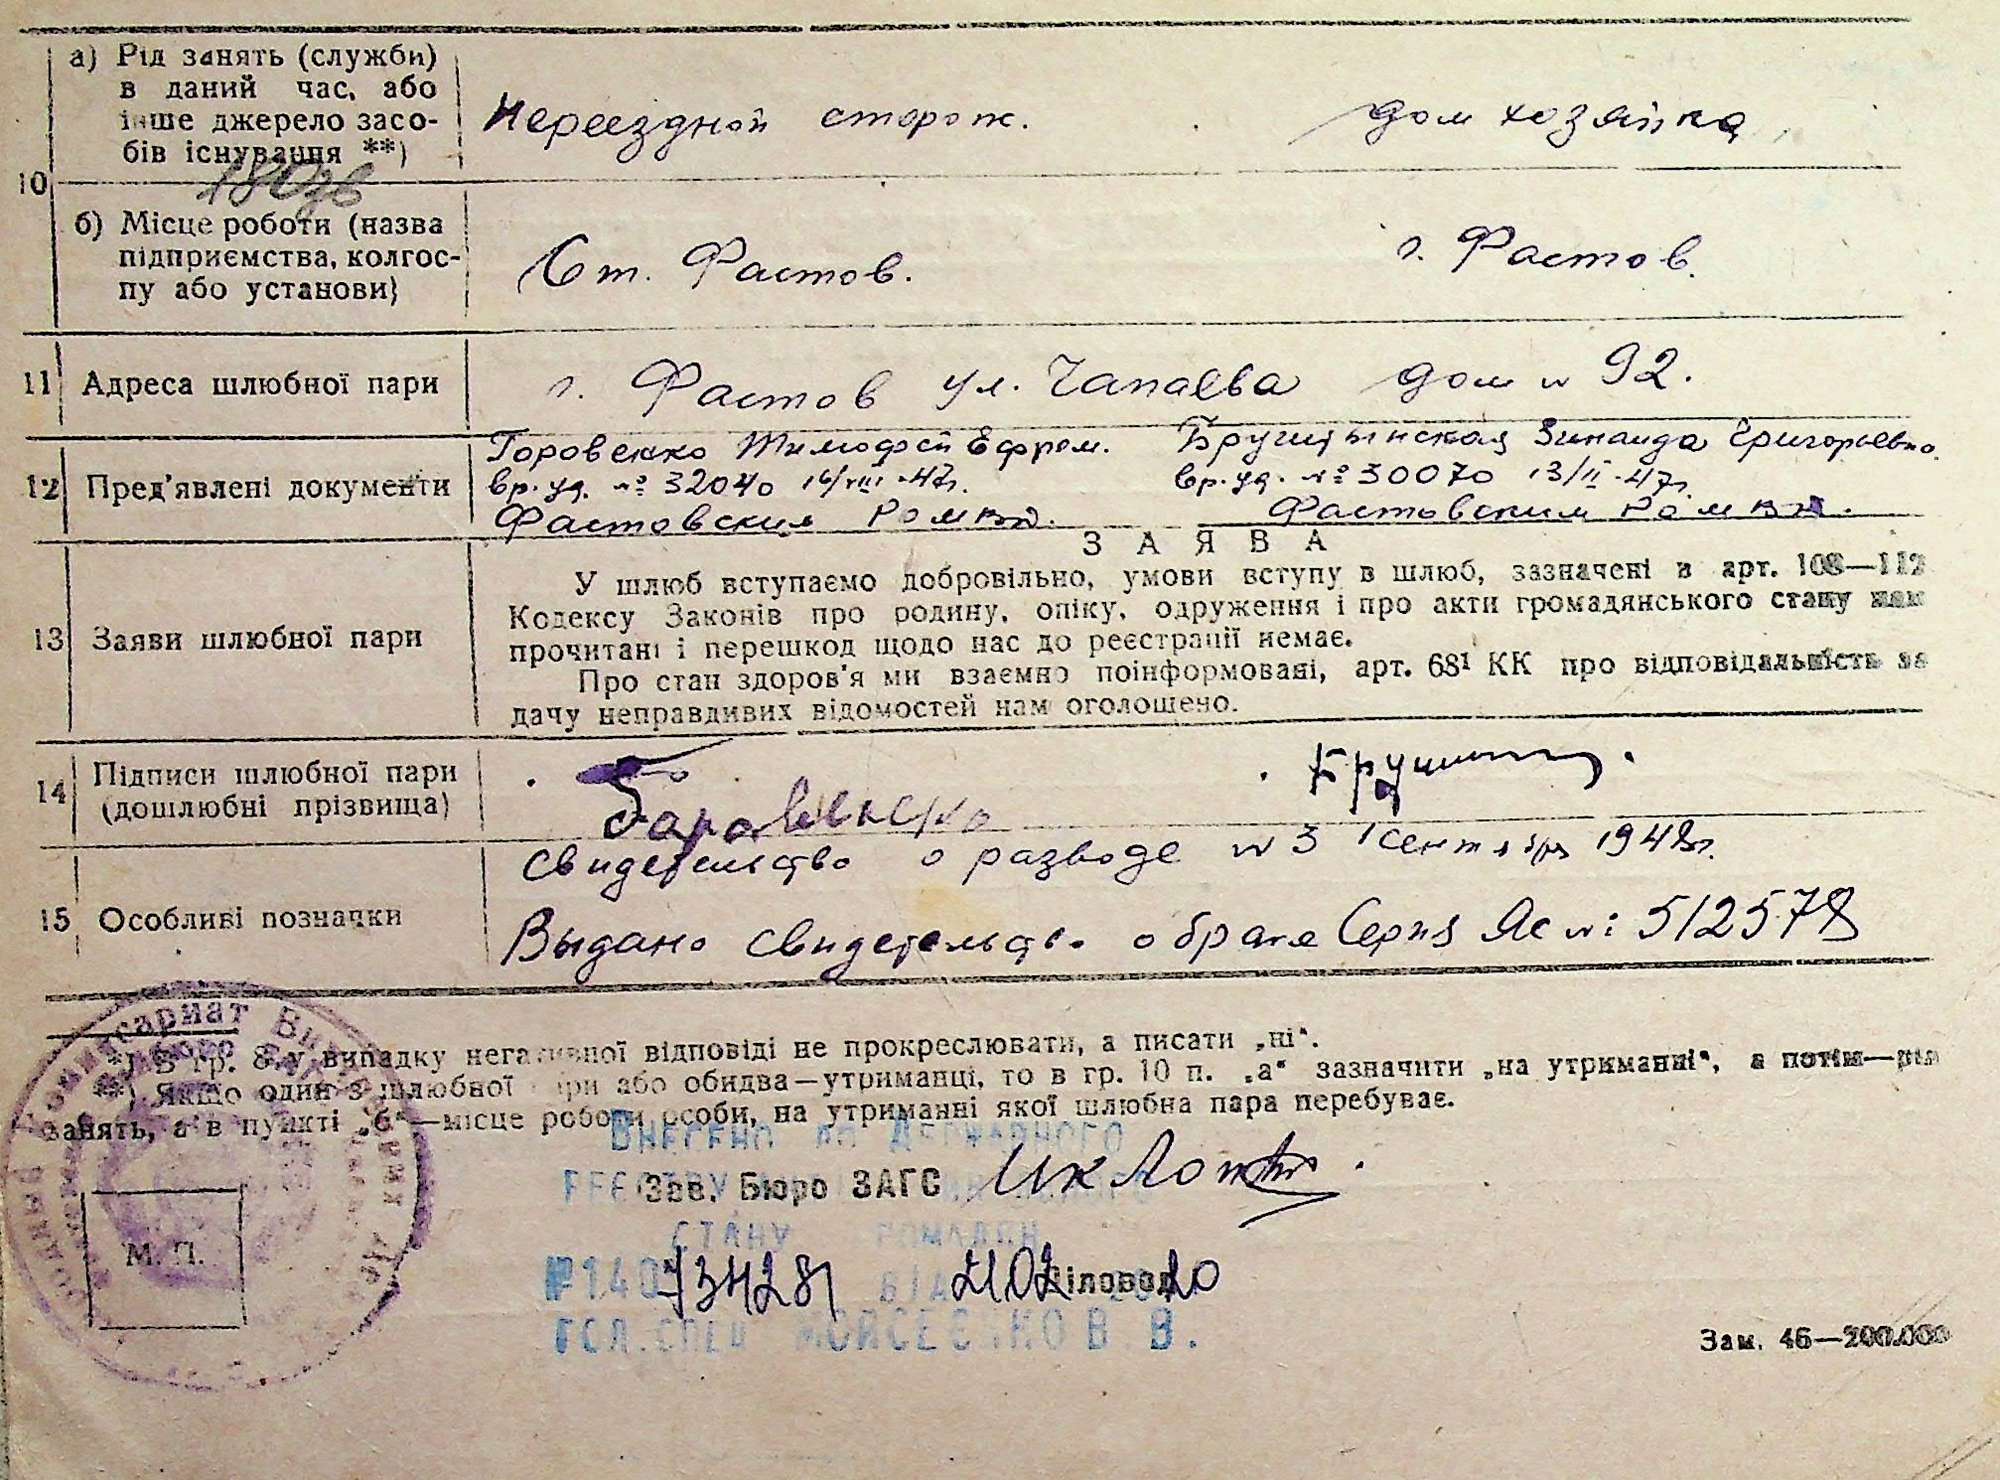 10
а) Рід занять (служби)
в даний час, або
інше джерело засо-
бів існування **)
Переездной сторож.
дом хозяйка
б) Місце роботи (назва
підприємства, колгос-
пу або установи)
Ст. Фастов.
г. Фастов.
11 Адреса шлюбної пари
г. Фастов ул. Чапаева дом № 92.
12 Пред'явлені документи
Горовенко Тимофей Ефрем.
вр. уд. № 32040 16/VIII-47г.
Фастовским
Зинаида Григорьевна
вр. уд. № 30070 13/II-47г.
Фастовским
13 Заяви шлюбної пари
ЗАЯВА
У шлюб вступаємо добровільно, умови вступу в шлюб, зазначені в арт. 108—112
Кодексу Законів про родину, опіку, одруження і про акти громадянського стану нам
прочитані і перешкод щодо нас до реєстрації немає.
Про стан здоров'я ми взаємно поінформовані, арт. 68¹ КК про відповідальність за
дачу неправдивих відомостей нам оголошено.
14 Підписи шлюбної пари
(дошлюбні прізвища)
15 Особливі позначки
Свидетельство о разводе № 3 1 сентября 1948г.
Выдано свидетельство о браке Серия Яс №: 512578
*) В гр. 8 у випадку негативної відповіді не прокреслювати, а писати „ні“.
**) Якщо один з шлюбної пари або обидва—утриманці, то в гр. 10 п. „а“ зазначити „на утриманні“, а потім—рід
занять, а в пункті „б“—місце роботи особи, на утриманні якої шлюбна пара перебуває.
Внесено до Державного
реєстру
Зав. Бюро ЗАГС
стану громадян
Діловод
М. П.
Гол. спец Мойсеєнко В. В.
Зам. 46—200.000